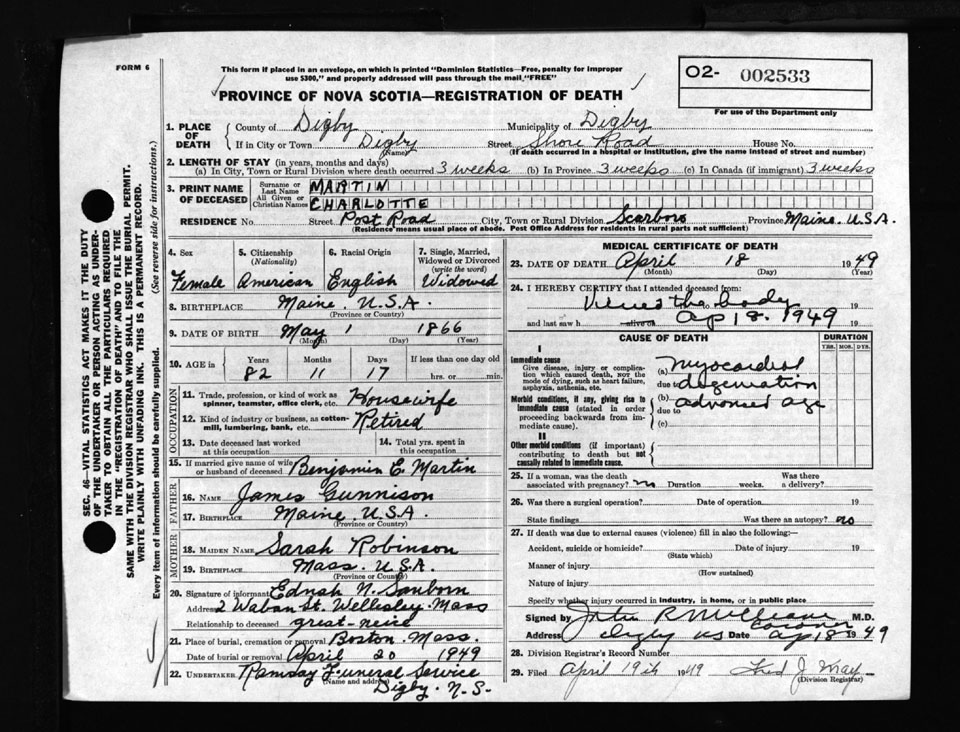 FORM 6
This form if placed in an envelope, on which is printed "Dominion Statistics—Free, penalty for improper
use $300," and properly addressed will pass through the mail "FREE"
O2- 002533
PROVINCE OF NOVA SCOTIA—REGISTRATION OF DEATH
For use of the Department only
1. PLACE OF DEATH County of Digby Municipality of Digby
If in City or Town Digby Street Shore Road House No.
(Name) (If death occurred in a hospital or institution, give the name instead of street and number)
2. LENGTH OF STAY (in years, months and days)
(a) In City, Town or Rural Division where death occurred 3 weeks (b) In Province 3 weeks (c) In Canada (if immigrant) 3 weeks
3. PRINT NAME OF DECEASED Surname or Last Name MARTIN
All Given or Christian Names CHARLOTTE
RESIDENCE No. Street Post Road City, Town or Rural Division Scarboro Province Maine. U.S.A.
(Residence means usual place of abode. Post Office Address for residents in rural parts not sufficient)
4. Sex 5. Citizenship (Nationality) 6. Racial Origin 7. Single, Married, Widowed or Divorced (write the word)
Female American English Widowed
8. BIRTHPLACE Maine U.S.A.
(Province or Country)
9. DATE OF BIRTH May 1 1866
(Month) (Day) (Year)
10. AGE in Years Months Days If less than one day old
82 11 17 hrs. or min.
OCCUPATION
11. Trade, profession, or kind of work as spinner, teamster, office clerk, etc. Housewife
12. Kind of industry or business, as cotton-mill, lumbering, bank, etc. Retired
13. Date deceased last worked at this occupation 14. Total yrs. spent in this occupation
15. If married give name of wife or husband of deceased Benjamin E. Martin
FATHER
16. NAME James Gunnison
17. BIRTHPLACE Maine U.S.A.
(Province or Country)
MOTHER
18. MAIDEN NAME Sarah Robinson
19. BIRTHPLACE Mass. U.S.A.
(Province or Country)
20. Signature of informant Ednah N. Sanborn
Address 2 Waban St. Wellisley. Mass
Relationship to deceased great-neice
21. Place of burial, cremation or removal Boston. Mass.
Date of burial or removal April 20 1949
22. UNDERTAKER Ramsay Funeral Service
(Name and address) Digby. N.S.
MEDICAL CERTIFICATE OF DEATH
23. DATE OF DEATH April 18 1949
(Month) (Day) (Year)
24. I HEREBY CERTIFY that I attended deceased from:
Viewed the body 19
and last saw h alive on Ap 18. 1949 19
CAUSE OF DEATH DURATION
YRS. MOS. DYS.
I
Immediate cause
Give disease, injury or complication which caused death, not the mode of dying, such as heart failure, asphyxia, asthenia, etc.
(a) myocardial
due to degeneration
Morbid conditions, if any, giving rise to immediate cause (stated in order proceeding backwards from immediate cause).
(b) advanced age
due to
(c)
II
Other morbid conditions (if important) contributing to death but not causally related to immediate cause.
25. If a woman, was the death associated with pregnancy? no Duration weeks. Was there a delivery?
26. Was there a surgical operation? Date of operation 19
State findings Was there an autopsy? no
27. If death was due to external causes (violence) fill in also the following:—
Accident, suicide or homicide? Date of injury 19
(State which)
Manner of injury
(How sustained)
Nature of injury
Specify whether injury occurred in industry, in home, or in public place
Signed by M.D.
Coroner
Address Digby NS Date Ap 18 1949
28. Division Registrar's Record Number
29. Filed April 19th 1949 Fred J. May
(Division Registrar)
SEC. 46—VITAL STATISTICS ACT MAKES IT THE DUTY
OF THE UNDERTAKER OR PERSON ACTING AS UNDER-
TAKER TO OBTAIN ALL THE PARTICULARS REQUIRED
IN THE "REGISTRATION OF DEATH" AND TO FILE THE
SAME WITH THE DIVISION REGISTRAR WHO SHALL ISSUE THE BURIAL PERMIT.
WRITE PLAINLY WITH UNFADING INK. THIS IS A PERMANENT RECORD.
Every item of information should be carefully supplied. (See reverse side for instructions.)